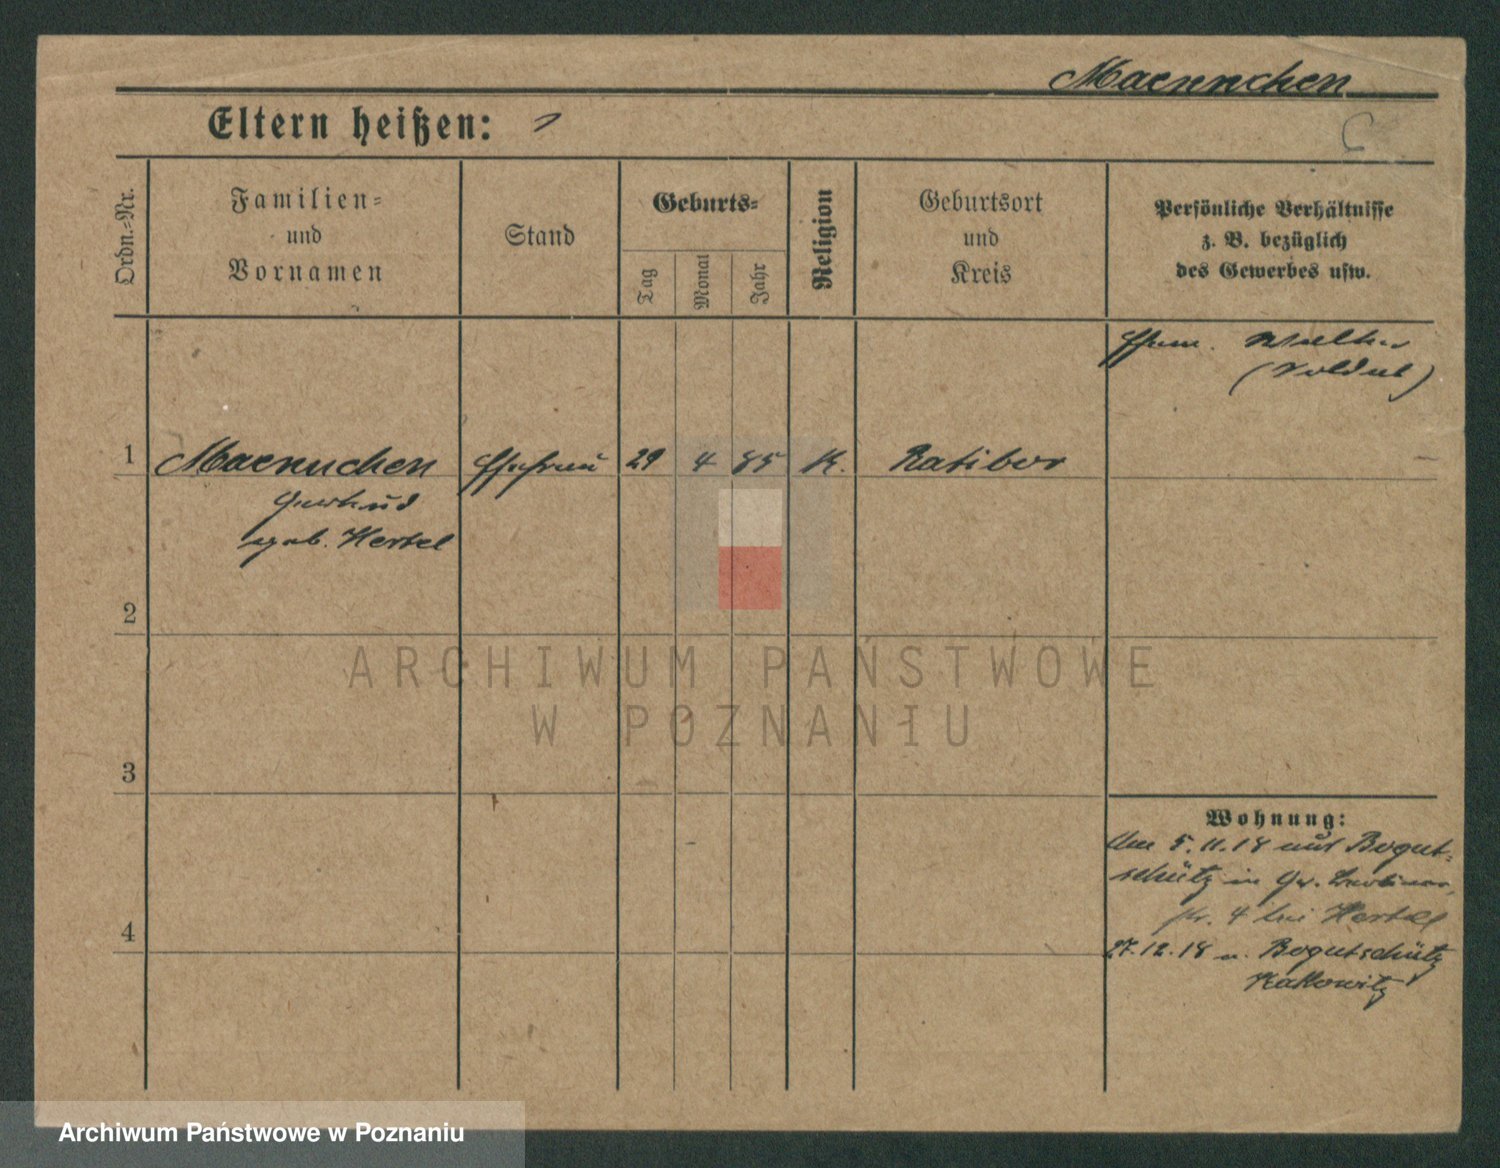 Maennchen
Eltern heißen:
Ordn.-Nr.
Familien-
und
Vornamen
Stand
Geburts-
Tag
Monat
Jahr
Religion
Geburtsort
und
Kreis
Persönliche Verhältnisse
z. B. bezüglich
des Gewerbes usw.
Ehem. Walter
(Soldat)
1 Maennchen Ehefrau 29 4 85 K. Ratibor
Gertrud
geb. Hertel
2
3
4
Wohnung:
Am 5.11.18 aus Bogut-
schütz in Gr.
str. 4 bei Hertel
27.12.18 n. Bogutschütz
Kattowitz
ARCHIWUM PAŃSTWOWE
W POZNANIU
Archiwum Państwowe w Poznaniu